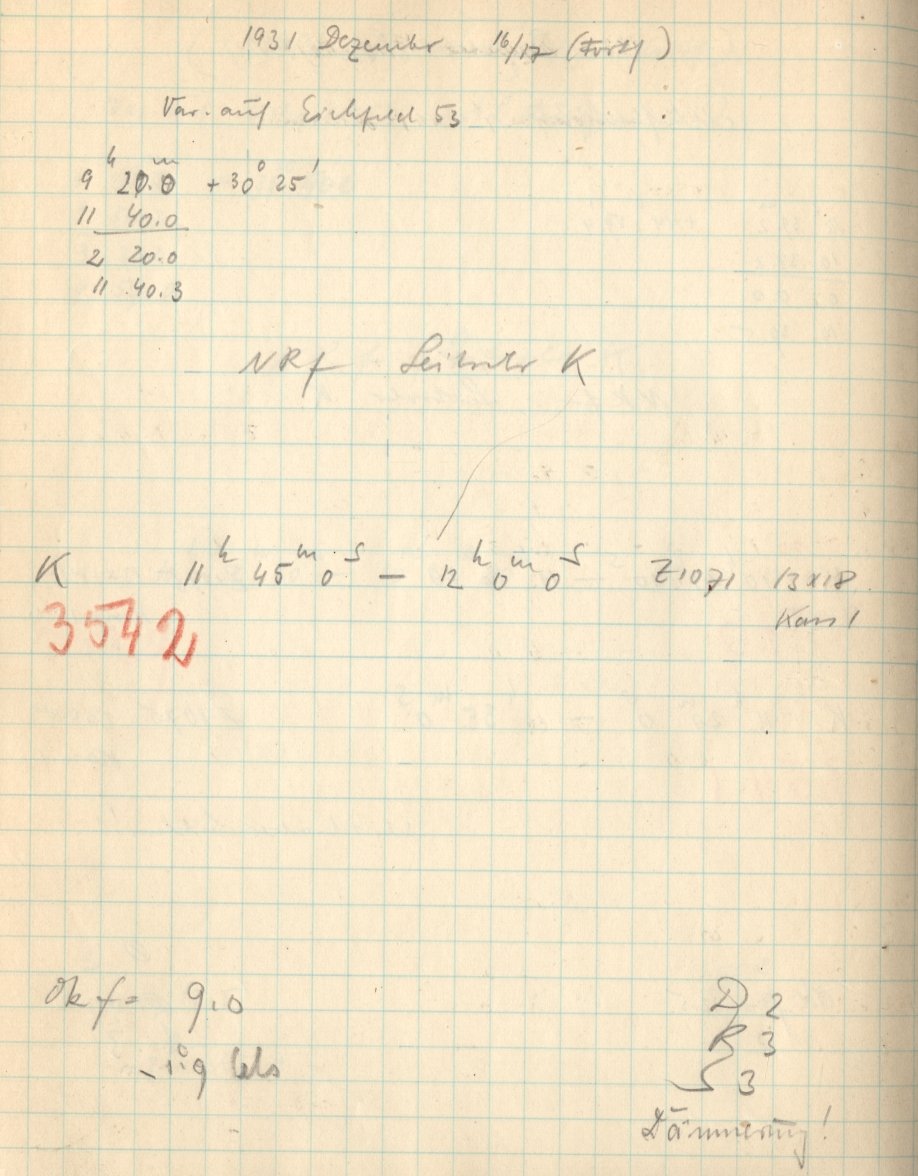 1931 Dezember 16/17 (Forts)
Var. auf Eichfeld 53
9h 20.0m +30° 25'
11 40.0
2 20.0
11 40.3
NRf Leitrohr K
K 11h 45m 0s — 12h 0m 0s Z1071 13x18
3542 Kass 1
Ok f= 9.0 D 2
-1.9 R 3
S 3
Dämmerung!